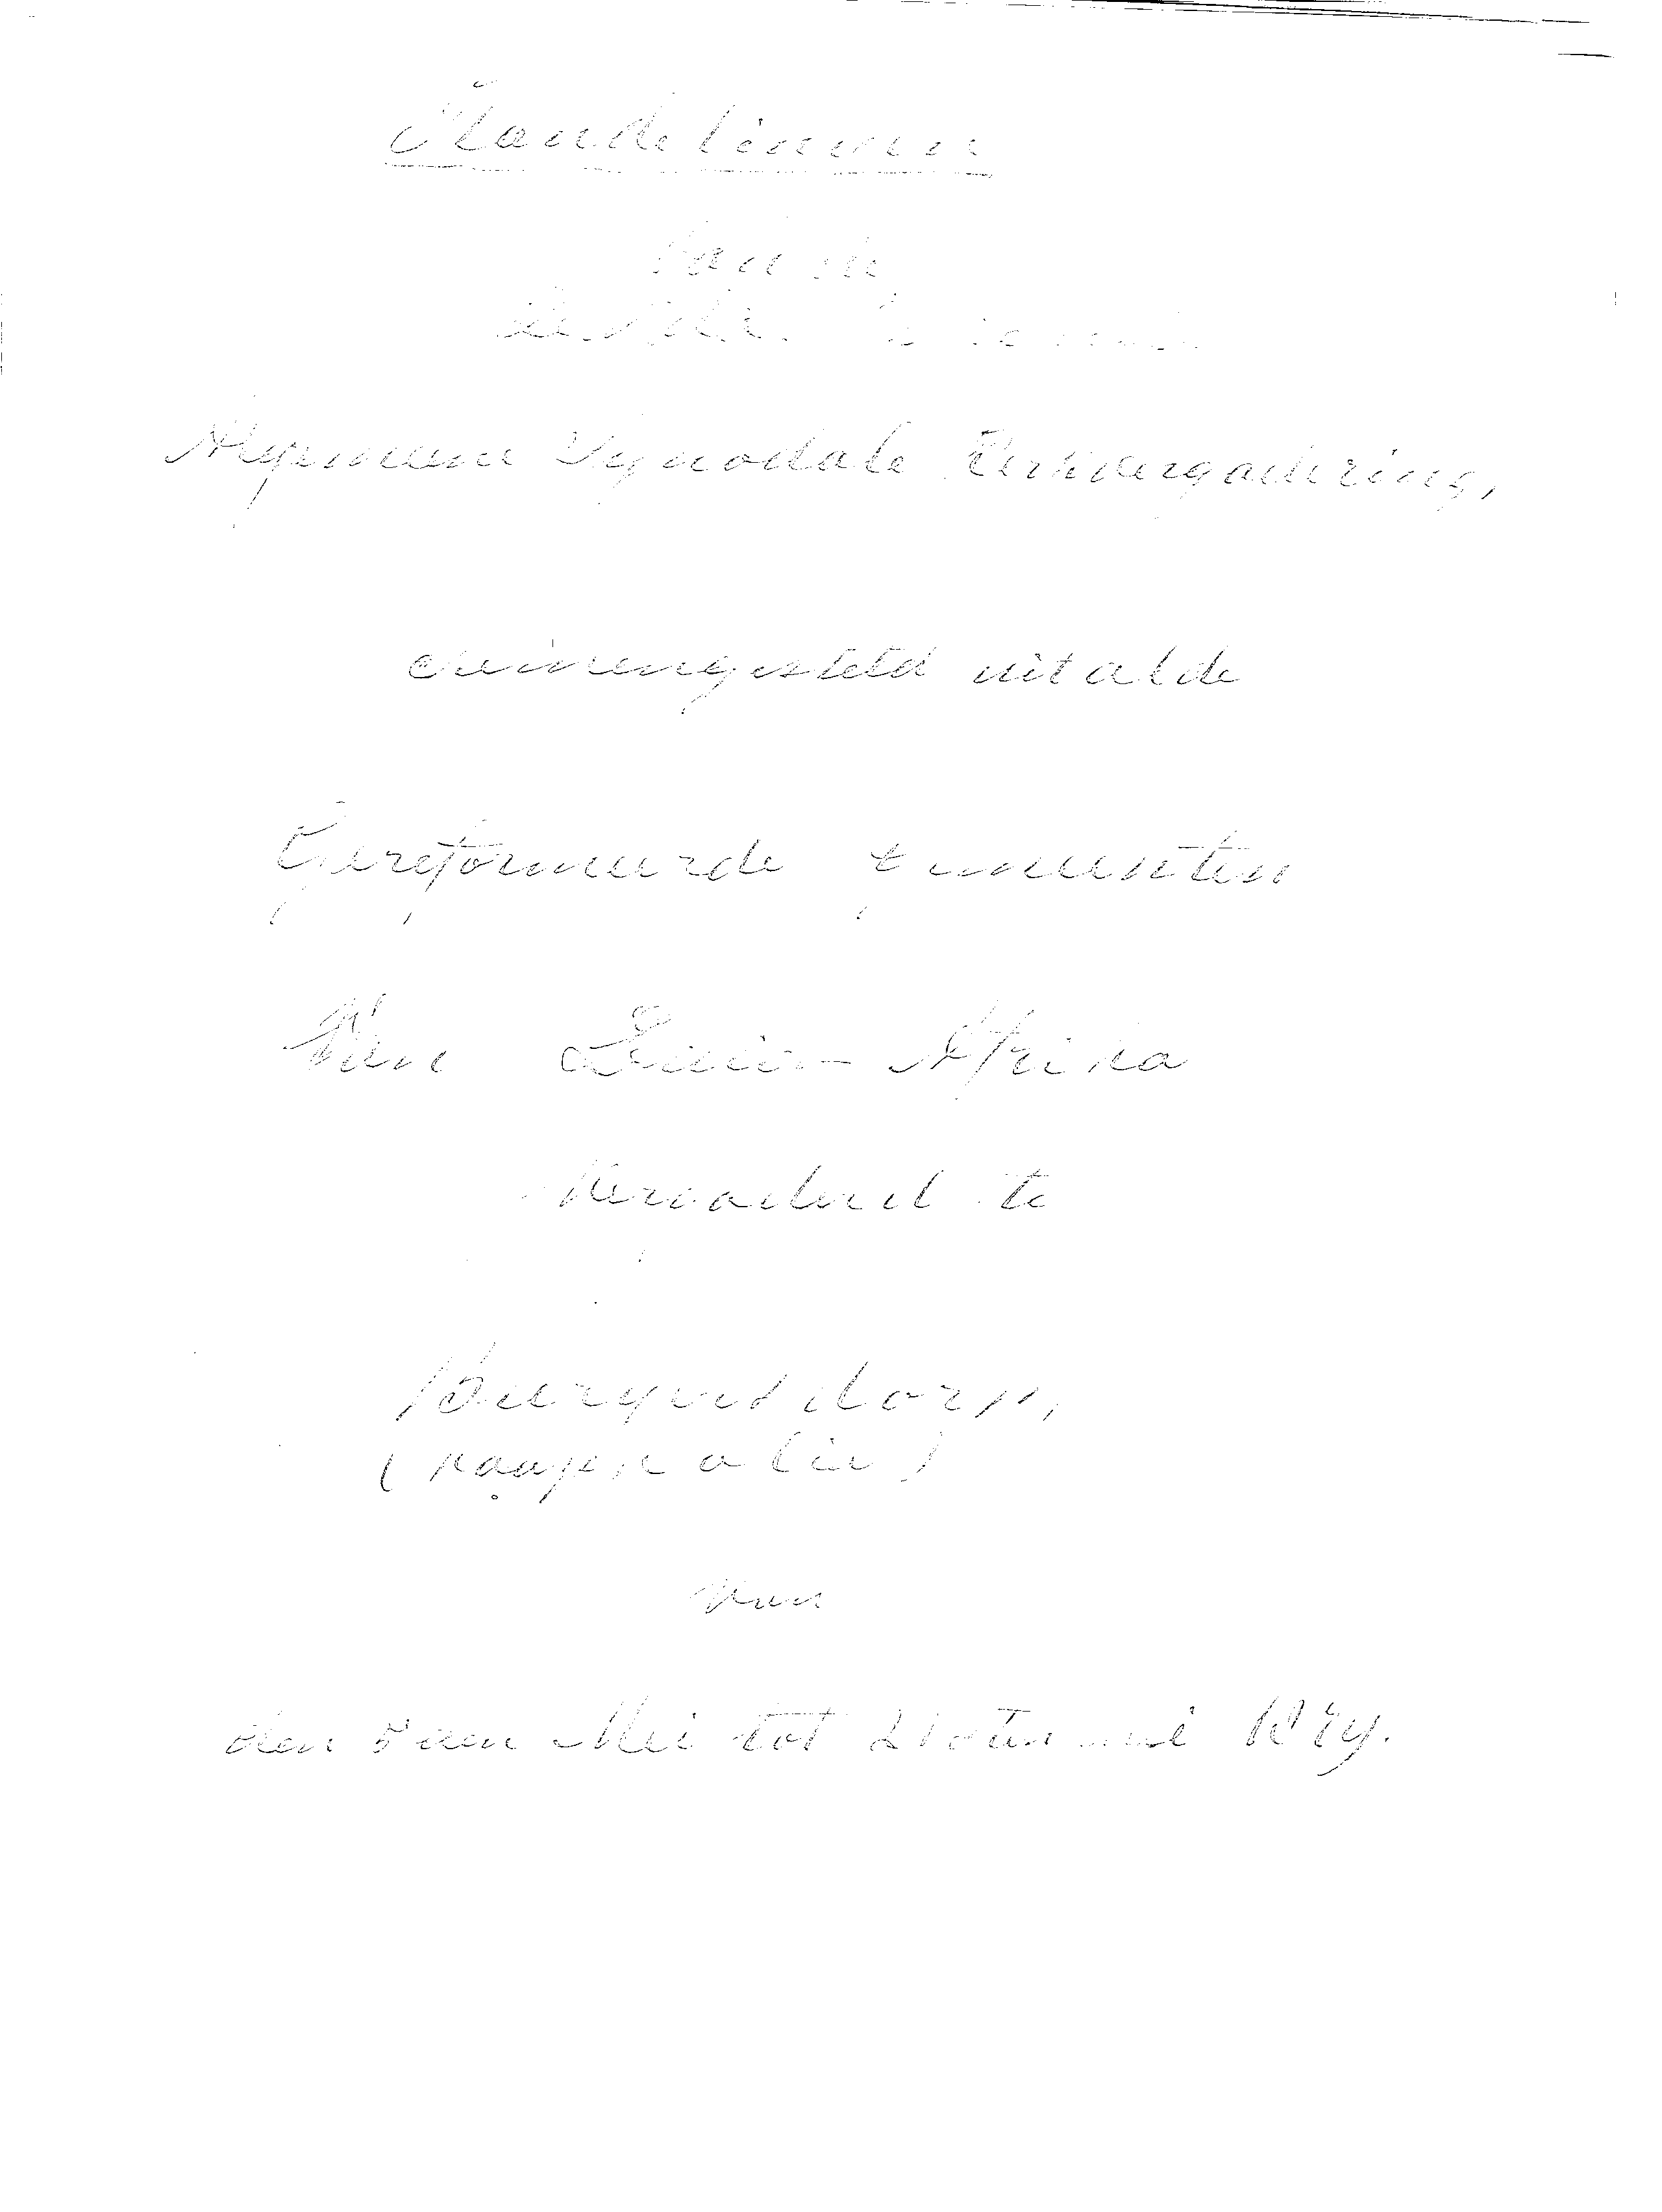 Handelingen
van de
Algemeene Synodale Kerkvergadering,
saamengesteld uit al de
Gereformeerde Gemeenten
Van Zuid-Afrika
Vergaderd te
Burgersdorp,
(Kaapkolonie)
Van
den Mei tot Juni